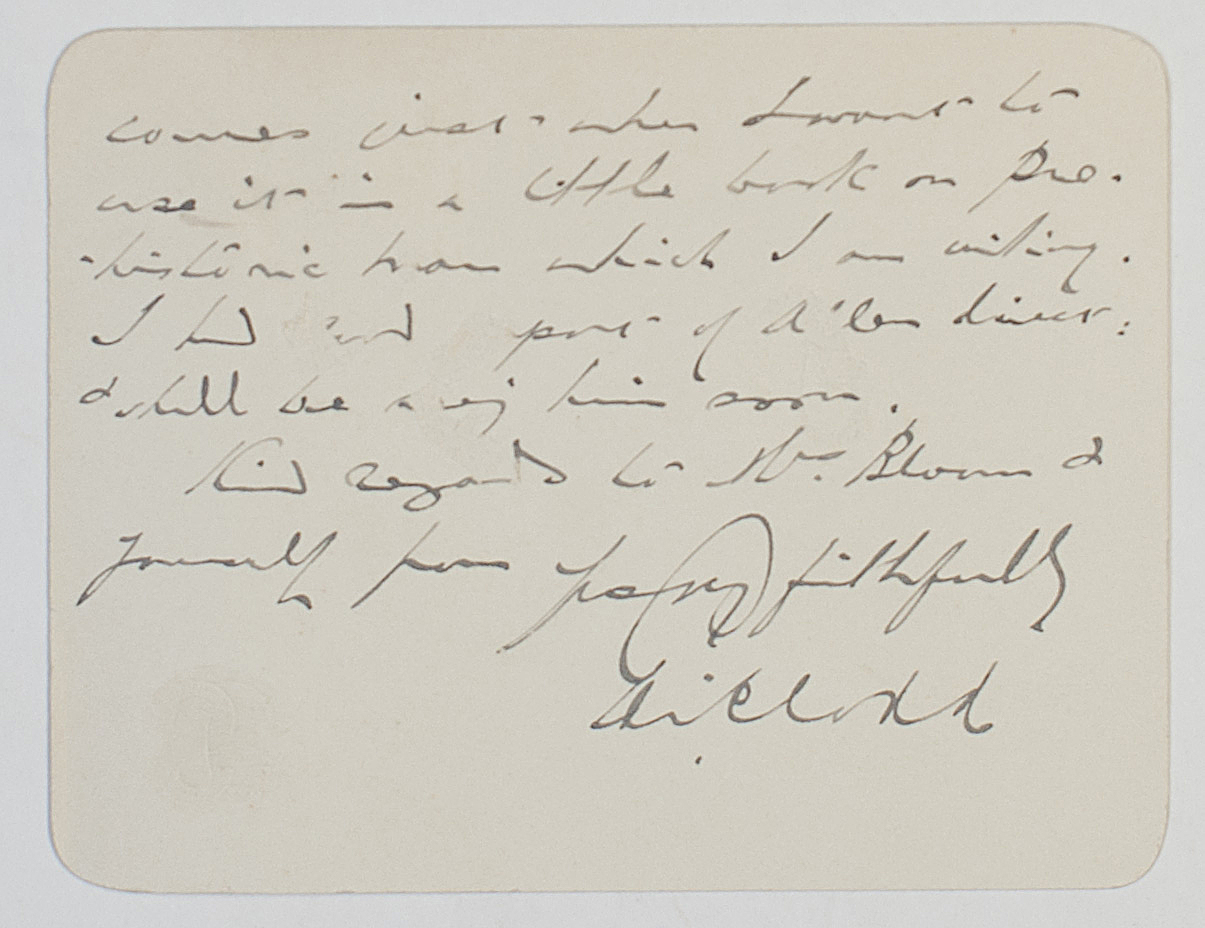 comes just when I want to
use it in a little book on Pre-
-historic man which I am writing.
I had part of Allen direct:
& shall be him soon.
Kind regards to Mrs. Bloom &
yourself from yrs faithfully
Clodd